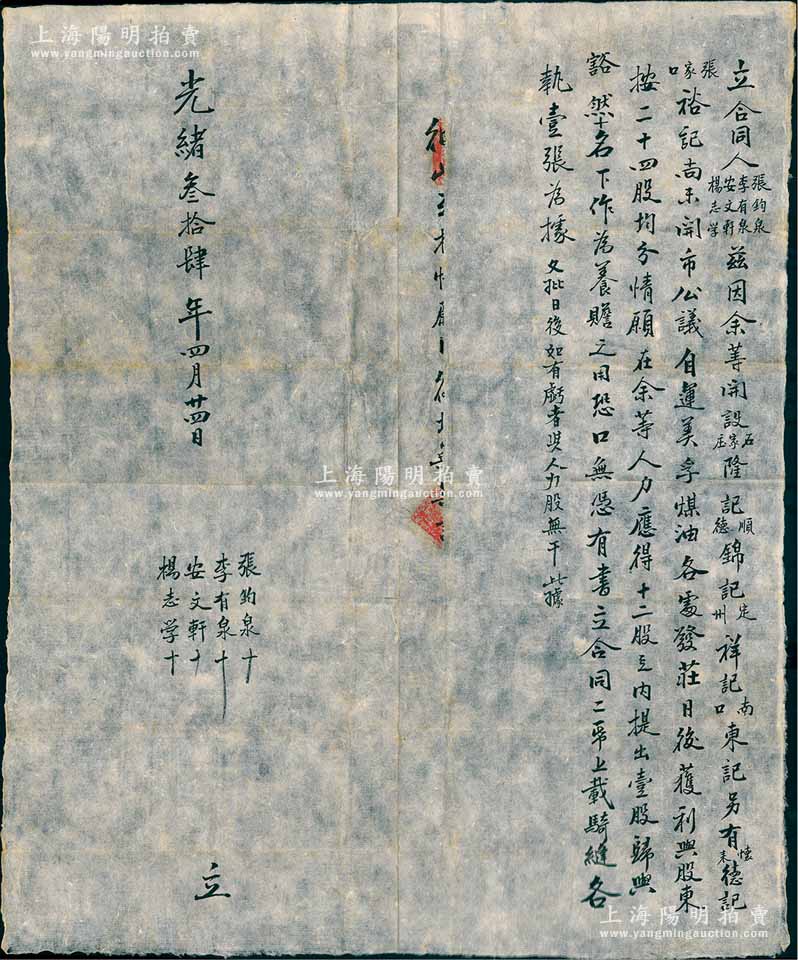 立合同人張鈞泉李有泉安文軒楊志学茲因余等開設石家庄隆記順德錦記定州祥記南口東記另有懷来德記
張家口裕記尚未開市公議自運美孚煤油各處發莊日後獲利與股東
按二十四股均分情願在余等人力應得十二股之内提出壹股歸與
谿然名下作為養贍之用恐口無憑有書立合同二帋上載騎縫各
執壹張為據 又批日後如有虧者與人力股無干此據
張鈞泉十
李有泉十
安文軒十
楊志学十
光緒叁拾肆年四月廿四日
立
上海陽明拍賣
www.yangmingauction.com
上海陽明拍賣
www.yangmingauction.com
上海陽明拍賣
www.yangmingauction.com